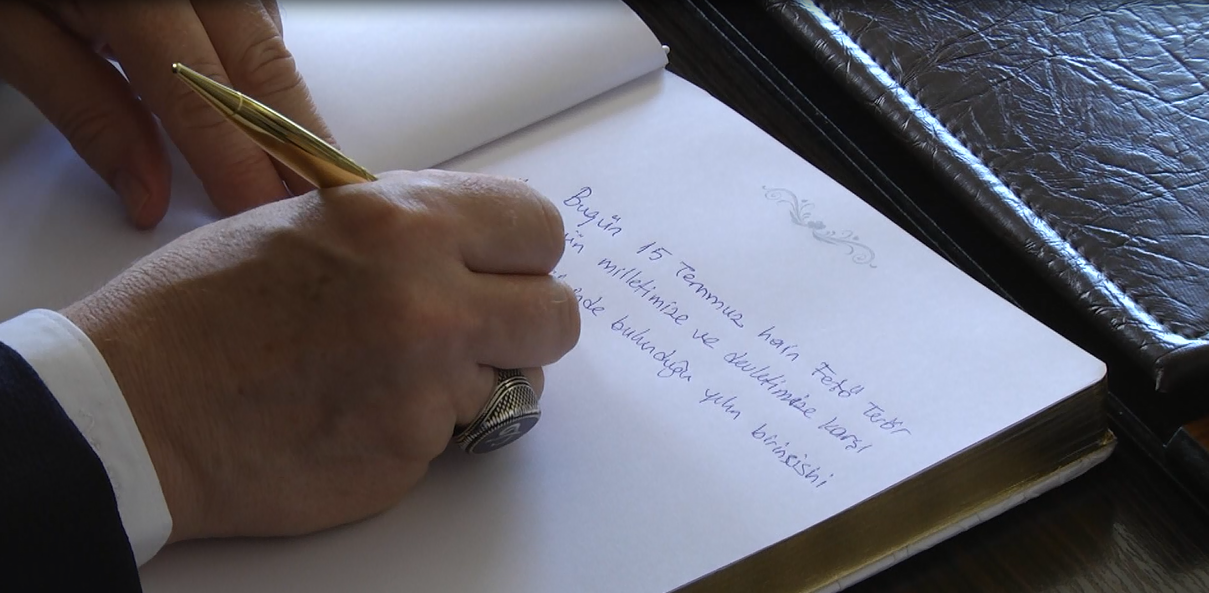 Bugün 15 Temmuz hain Fetö Terör
milletimize ve devletimize karşı
bulunduğu yılın